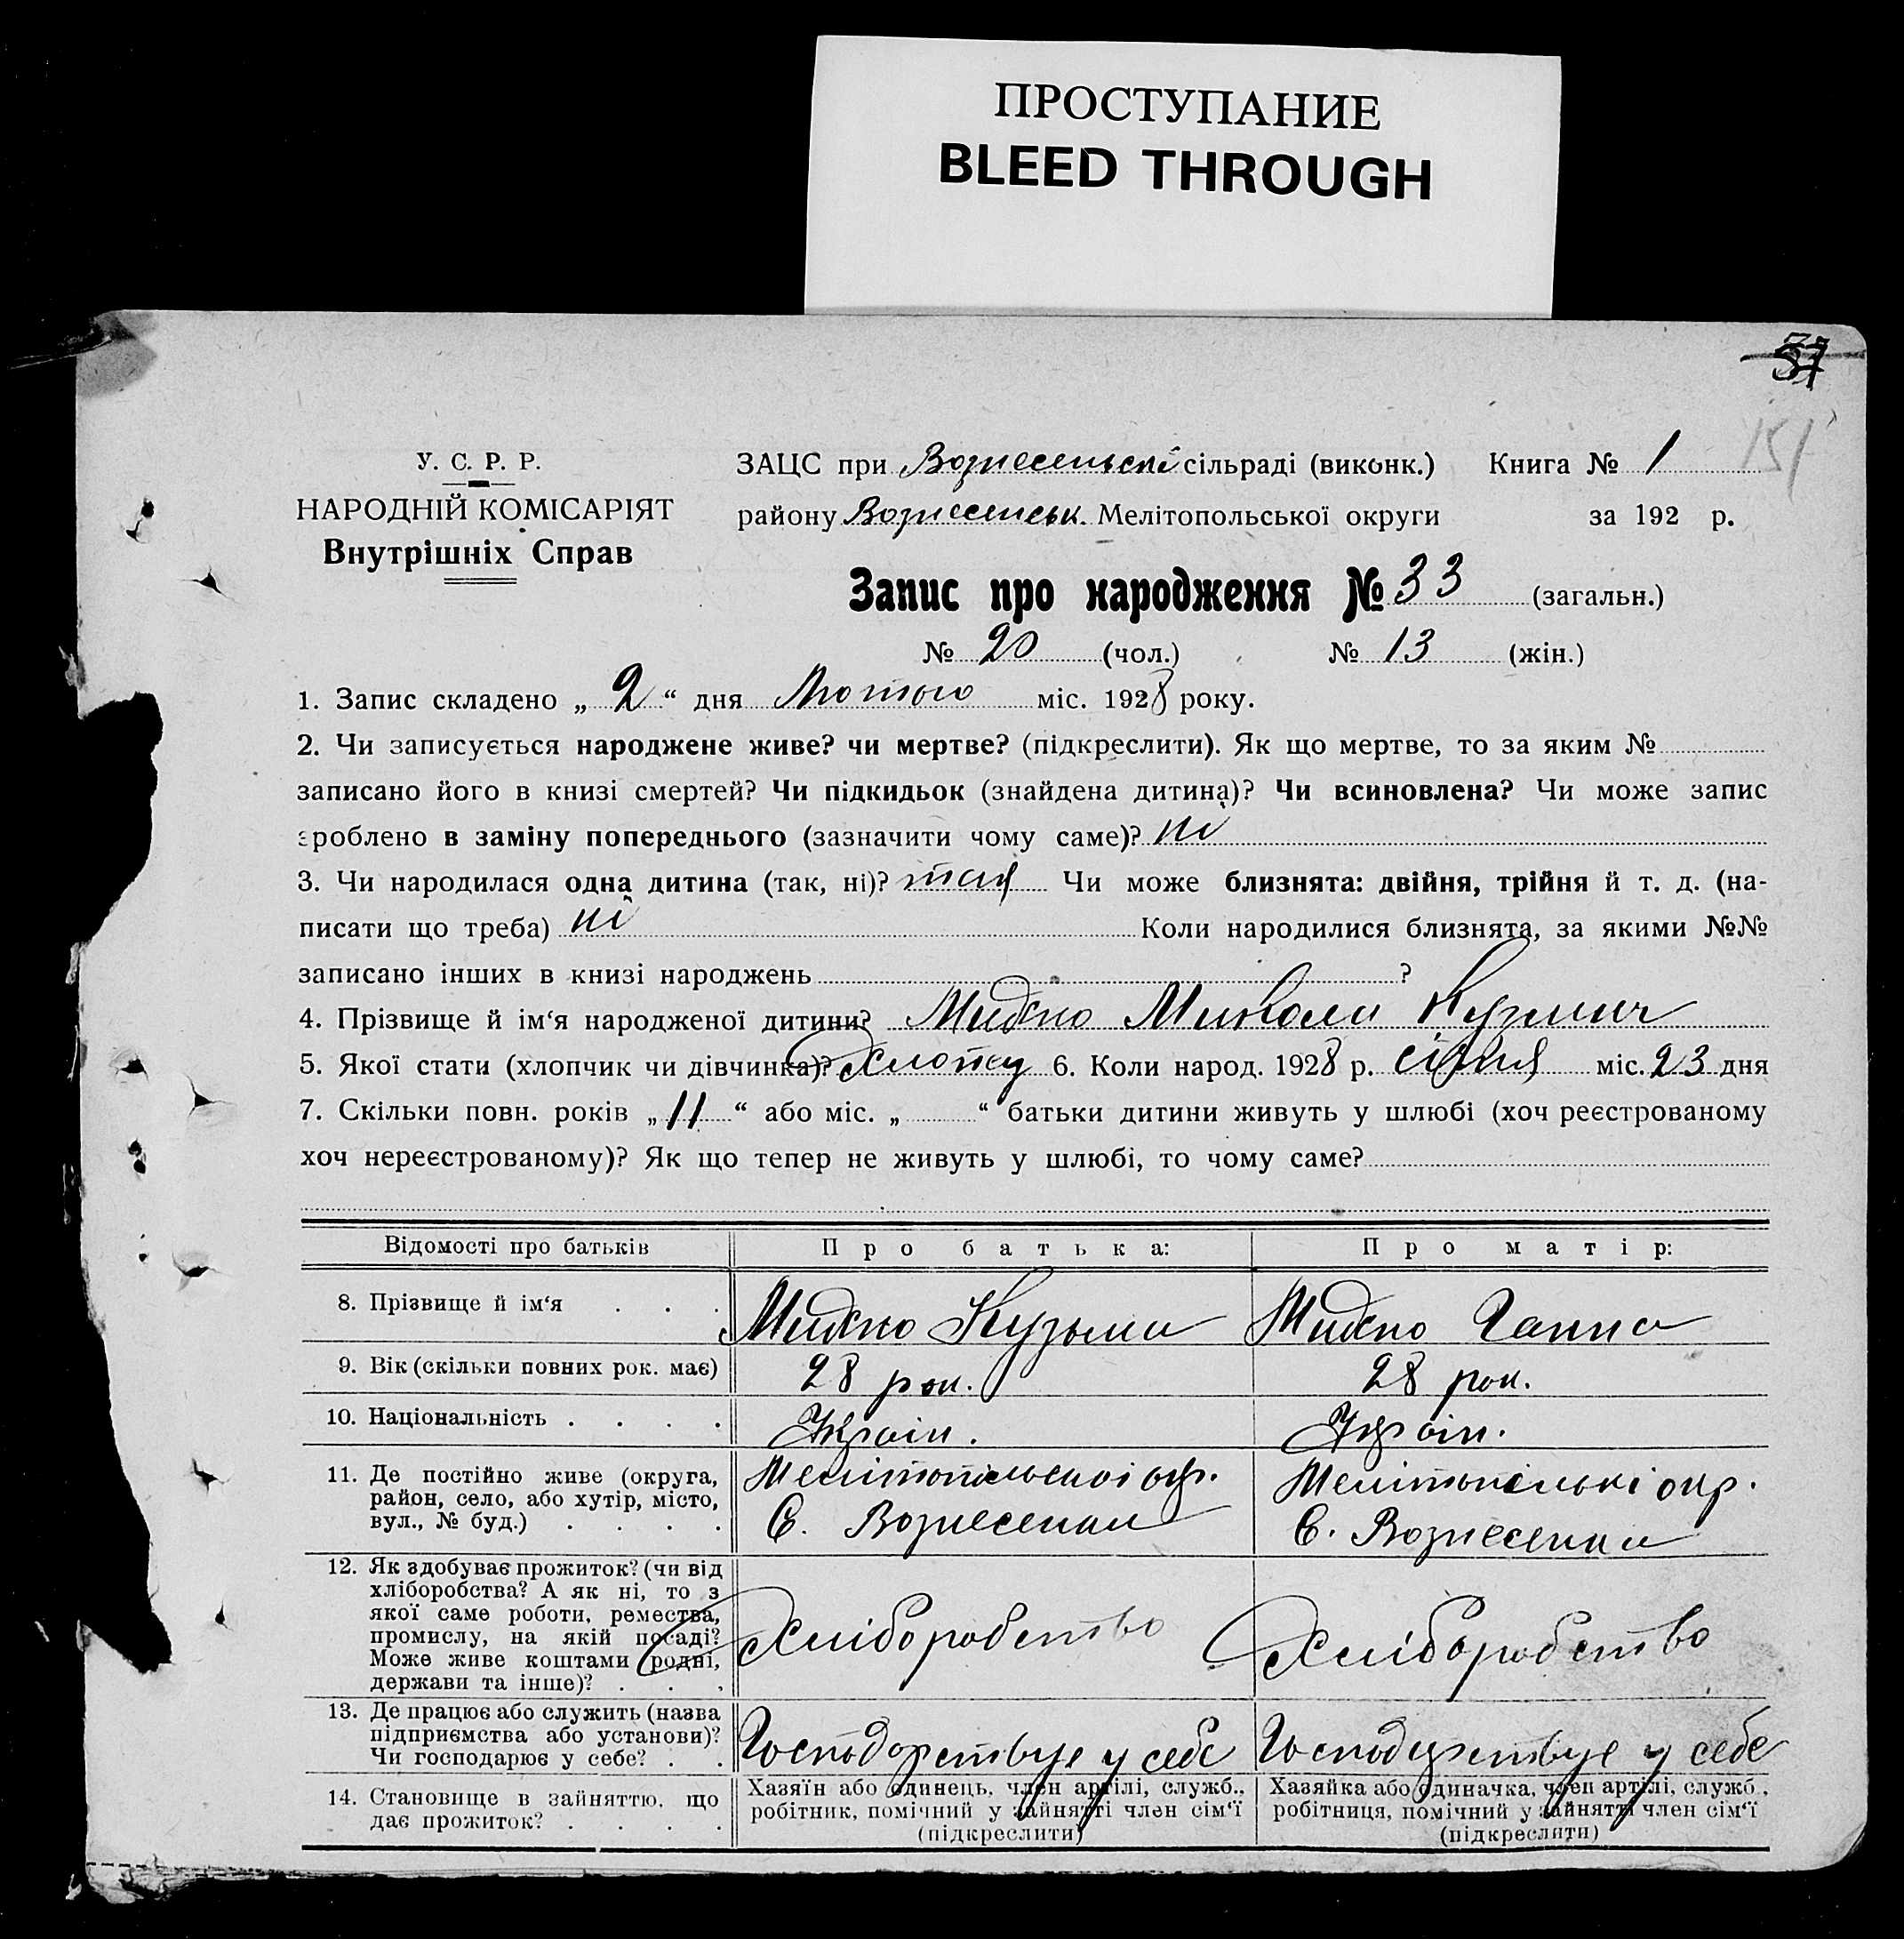 ПРОСТУПАНИЕ
BLEED THROUGH
37
151
У. С. Р. Р.
НАРОДНІЙ КОМІСАРІЯТ
Внутрішніх Справ
ЗАЦС при Вознесенській сільраді (виконк.) Книга № 1
району Вознесенськ. Мелітопольської округи за 192 р.
Запис про народження № 33 (загальн.)
№ 20 (чол.) № 13 (жін.)
1. Запис складено „ 2 “ дня Лютого міс. 1928 року.
2. Чи записується народжене живе? чи мертве? (підкреслити). Як що мертве, то за яким №
записано його в книзі смертей? Чи підкидьок (знайдена дитина)? Чи всиновлена? Чи може запис
зроблено в заміну попереднього (зазначити чому саме)? ні
3. Чи народилася одна дитина (так, ні)? так Чи може близнята: двійня, трійня й т. д. (на-
писати що треба) ні Коли народилися близнята, за якими №№
записано інших в книзі народжень ?
4. Прізвище й ім‘я народженої дитини? Микола Кузмич
5. Якої стати (хлопчик чи дівчинка)? 6. Коли народ. 1928 р. січня міс. 23 дня
7. Скільки повн. років „ 11 “ або міс. „ “ батьки дитини живуть у шлюбі (хоч реєстрованому
хоч нереєстрованому)? Як що тепер не живуть у шлюбі, то чому саме?
Відомості про батьків Про батька: Про матір:
8. Прізвище й ім‘я . . . Кузьма Ганна
9. Вік (скільки повних рок. має) 28 рок. 28 рок.
10. Національність . . . . Україн. Україн.
11. Де постійно живе (округа,
район, село, або хутір, місто,
вул., № буд.) . . . .
Мелітопільської окр.
С. Вознесенка
Мелітопількі окр.
С. Вознесенка
12. Як здобуває прожиток? (чи від
хліборобства? А як ні, то з
якої саме роботи, ремества,
промислу, на якій посаді?
Може живе коштами родні,
держави та інше)? . . .
Хліборобство
Хліборобство
13. Де працює або служить (назва
підприємства або установи)?
Чи господарює у себе? . .
Господорствує у себе
Господарствує у себе
14. Становище в зайняттю, що
дає прожиток? . . . .
Хазяїн або одинець, член артілі, служб.,
робітник, помічний у зайнятті член сім‘ї
(підкреслити)
Хазяйка або одиначка, член артілі, служб.,
робітниця, помічний у зайнятті член сім‘ї
(підкреслити)